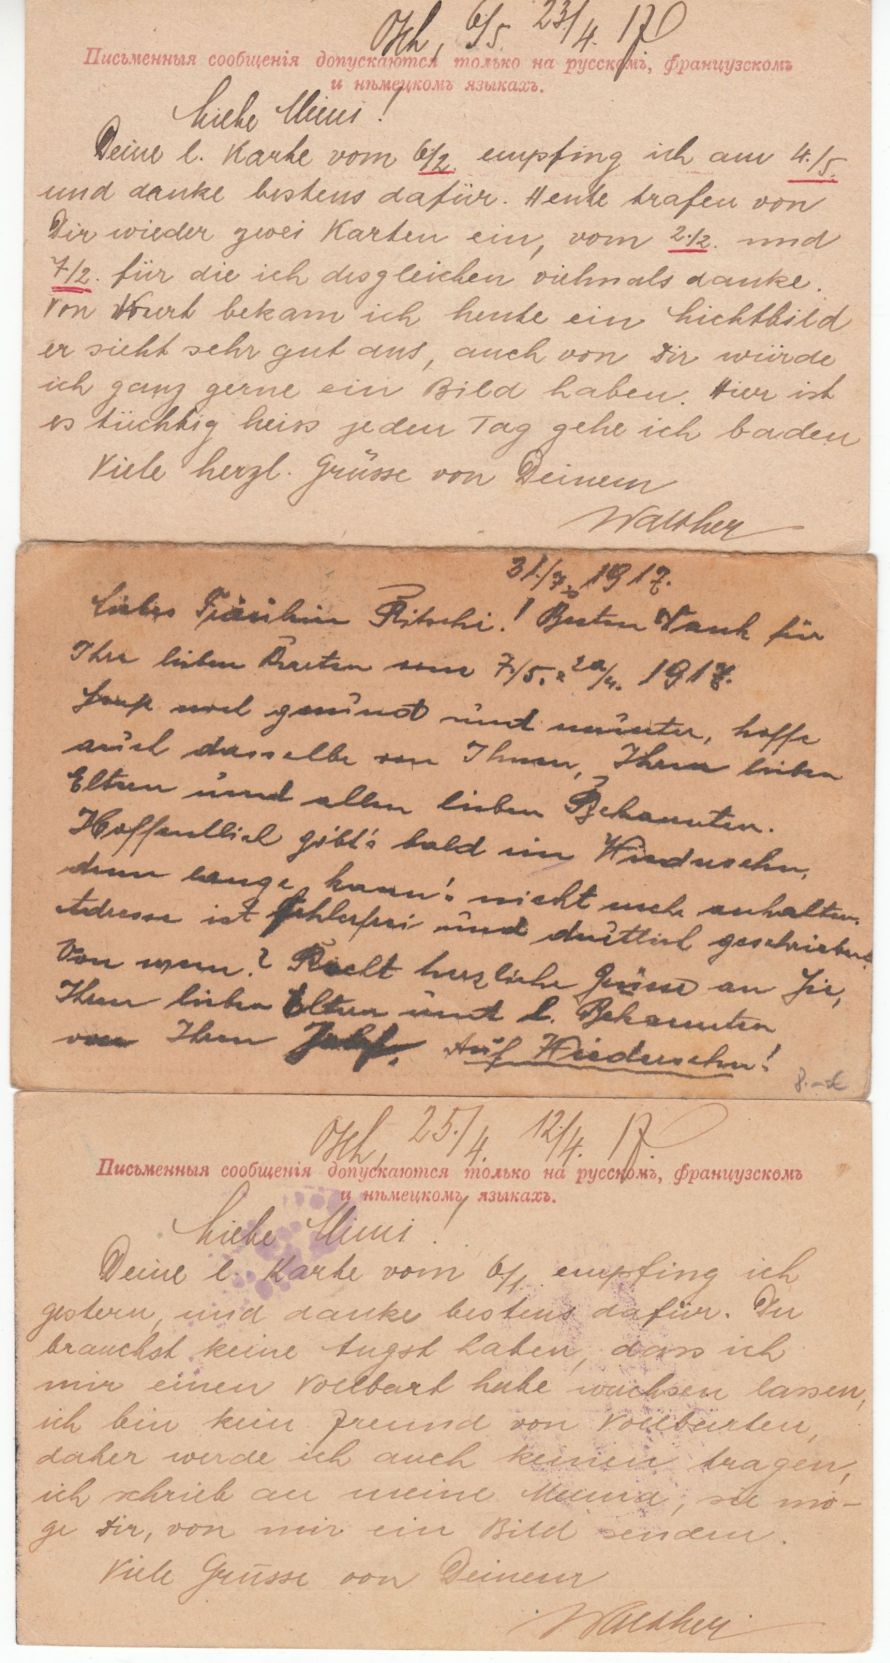 Osch, 6/5. 23/4. 17.
Письменныя сообщенія допускаются только на русскомъ, французскомъ
и нѣмецкомъ языкахъ.
Liebe Mimi!
Deine l. Karte vom 6/2. empfing ich am 4./5.
und danke bestens dafür. Heute trafen von
Dir wieder zwei Karten ein, vom 2./2. und
7/2. für die ich desgleichen vielmals danke.
Von Kurt bekam ich heute ein Lichtbild
er sieht sehr gut aus, auch von Dir würde
ich ganz gerne ein Bild haben. Hier ist
es tüchtig heiss jeden Tag gehe ich baden
Viele herzl. Grüsse von Deinem
Walther
31./7. 1917.
Liebes Fräulein Ritschi! Besten Dank für
Ihre lieben Karten vom 7./5. 20/4. 1917.
noch gesund und munter, hoffe
auch dasselbe von Ihnen, Ihren lieben
Eltern und allen lieben Bekannten.
Hoffentlich gibt's bald ein Wiedersehn,
denn lange kann's nicht mehr anhalten.
Adresse ist fehlerfrei und deutlich geschrieben.
Von wem? Recht herzliche Grüsse an Sie,
Ihren lieben Eltern und l. Bekannten
von Ihrem Auf Wiedersehn!
8.-
Osch, 25./4. 12/4. 17.
Письменныя сообщенія допускаются только на русскомъ, французскомъ
и нѣмецкомъ языкахъ.
Liebe Mimi!
Deine l. Karte vom 6/1. empfing ich
gestern, und danke bestens dafür. Du
brauchst keine Angst haben, dass ich
mir einen Vollbart habe wachsen lassen,
ich bin kein Freund von Vollbärten,
daher werde ich auch keinen tragen,
ich schrieb an meine Mama, sie mö-
ge Dir, von mir ein Bild senden.
Viele Grüsse von Deinem
Walther